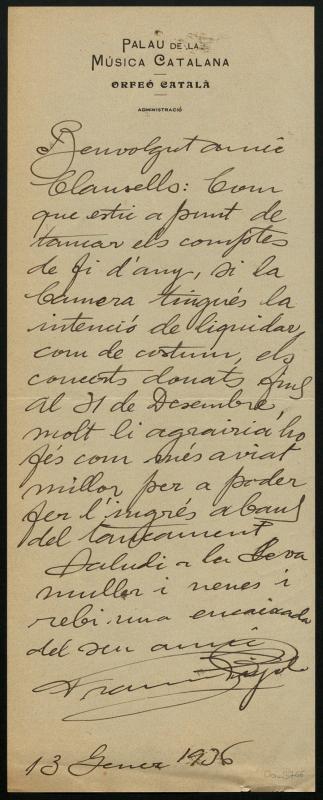 PALAU DE LA
MÚSICA CATALANA
ORFEÓ CATALÀ
ADMINISTRACIÓ
Benvolgut amic
Clausells: Com
que estic a punt de
tancar els comptes
de fi d'any, si la
Camera tingués la
intenció de liquidar,
com de costum, els
concerts donats fins
al 31 de Desembre,
molt li agrairia ho
fés com més aviat
millor per a poder
fer l'ingrés abans
del tancament
Saludi a la Seva
muller i nenes i
rebi una encaixada
del seu amic
Francesc Pujol
13 Gener 1936